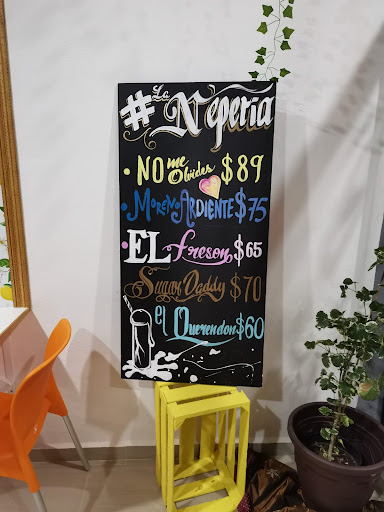 #La Neperia
• NO me Olvides $89
• Moreno ARDIENTE $75
• EL freson $65
Sugar Daddy $70
el Querendon $60